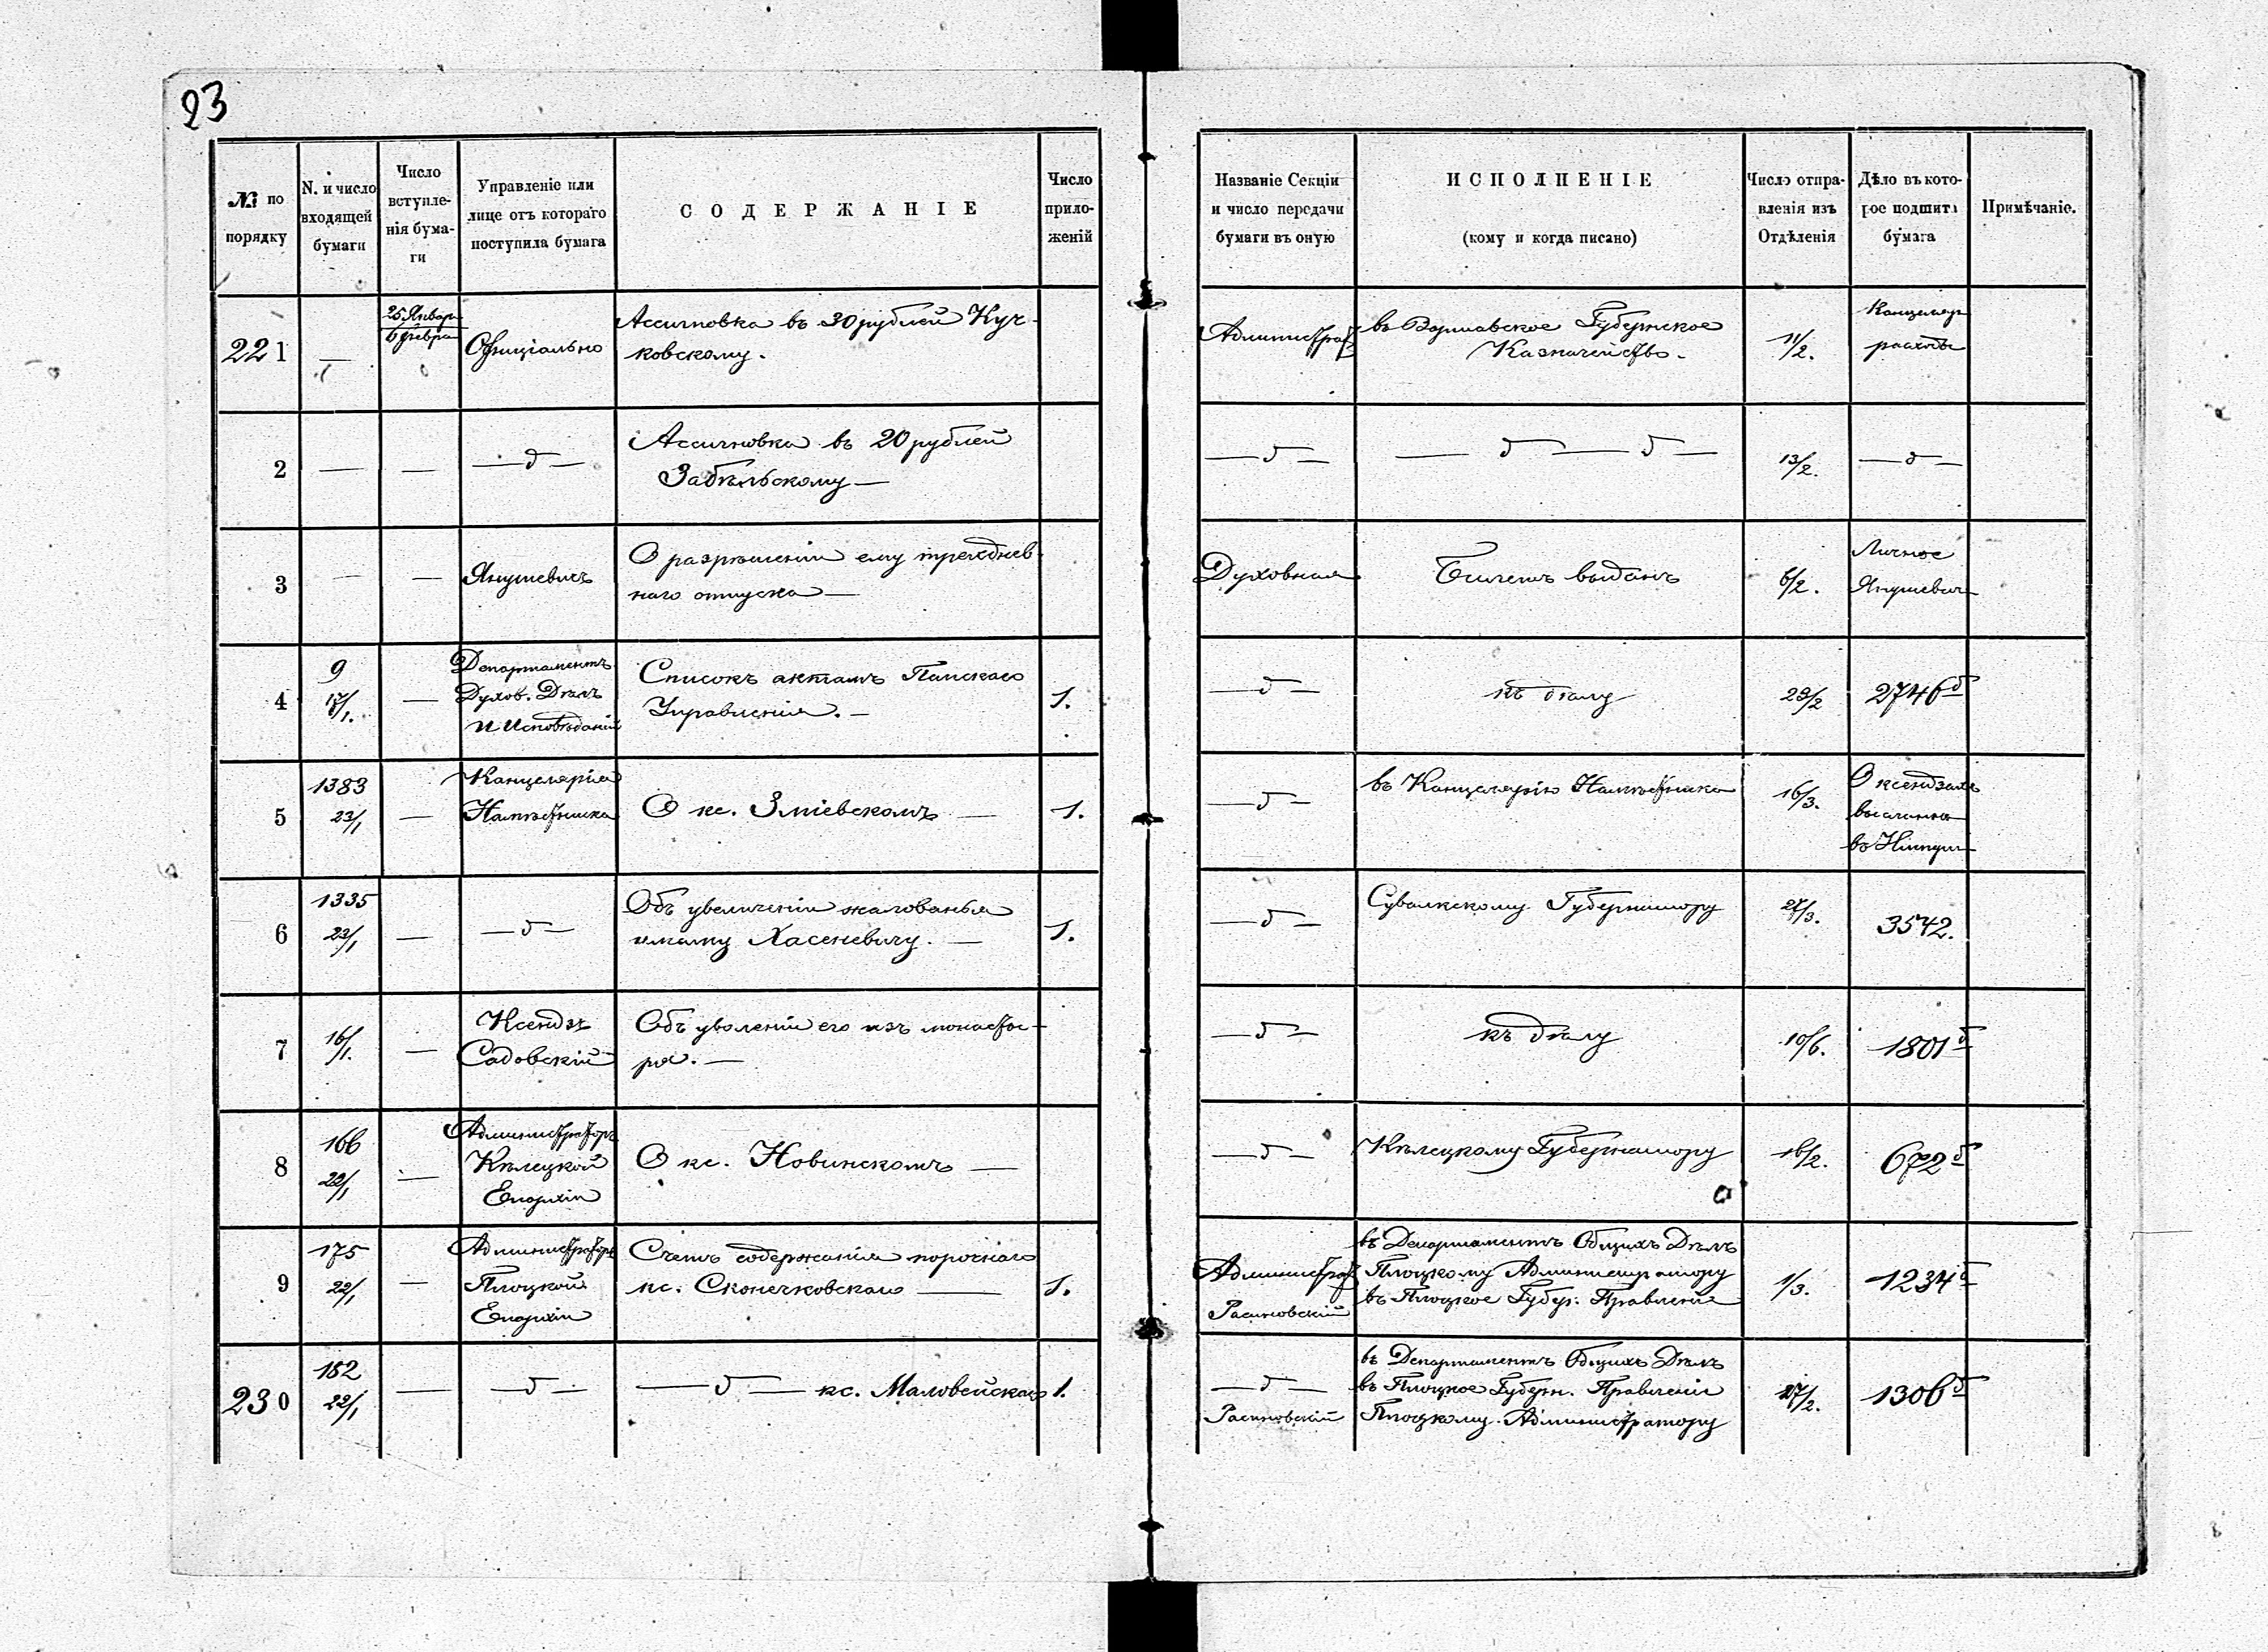 23
№ по порядку
N. и число входящей бумаги
Число вступле-нія бума-ги
Управленіе или лице отъ котораго поступила бумага
СОДЕРЖАНІЕ
Число прило-женій
Названіе Секціи и число передачи бумаги въ оную
ИСПОЛНЕНІЕ
(кому и когда писано)
Число отпра-вленія изъ Отдѣленія
Дѣло въ кото-рое подшита бумага
Примѣчаніе.
221 — 25 Январ 6 Февра Офиціально
Ассигновка въ 30 рублей Куч-
ковскому.
Администрат
въ Варшавское Губернское
Казначейство.
11/2.
Канцеляр
расходы
2 — — — д —
Ассигновка въ 20 рублей
Забѣльскому —
— д — — д — д — 13/2. — д —
3 — — Янушевичъ
О разрѣшеніи ему трехднев-
наго отпуска —
Духовная Билетъ выданъ 6/2.
Личное
Янушевич
4 9 17/1. —
Департаментъ
Духов. Дѣлъ
и Исповѣданій
Списокъ актамъ Папскаго
Управленія. — 1.
— д — къ дѣлу 29/2 2746 д
5 1383 23/1 —
Канцелярія
Намѣстника
О кс. Зміевскомъ — 1.
— д — въ Канцелярію Намѣстника 16/3.
О ксендзахъ
въ
6 1335 23/1 — — д —
Объ увеличеніи жалованья
имаму Хасеневичу. — 1.
— д — Сувалкскому Губернатору 27/3. 3542.
7 16/1. —
Ксендзъ
Садовскій
Объ уволеніи его изъ монасты-
ря. —
— д — къ дѣлу 10/6. 1801 д
8 166 22/1 —
Администраторъ
Кѣлецкой
Епархіи
О кс. Новинскомъ —
— д — Кѣлецкому Губернатору 16/2. 672 д
9 175 22/1 —
Администраторъ
Плоцкой
Епархіи
Счетъ содержанія порочнаго
кс. Сконечковскаго — 1.
Администрат
Расиновскій
въ Департаментъ Общихъ Дѣлъ
Плоцкому Администратору
въ Плоцкое Губер. Правленіе
1/3. 1234 д
230 182 22/1 — — д — — д — кс. Маловейскаго 1.
— д —
Расиновскій
въ Департаментъ Общихъ Дѣлъ
въ Плоцкое Губерн. Правленіе
Плоцкому Администратору
27/2. 1306 д